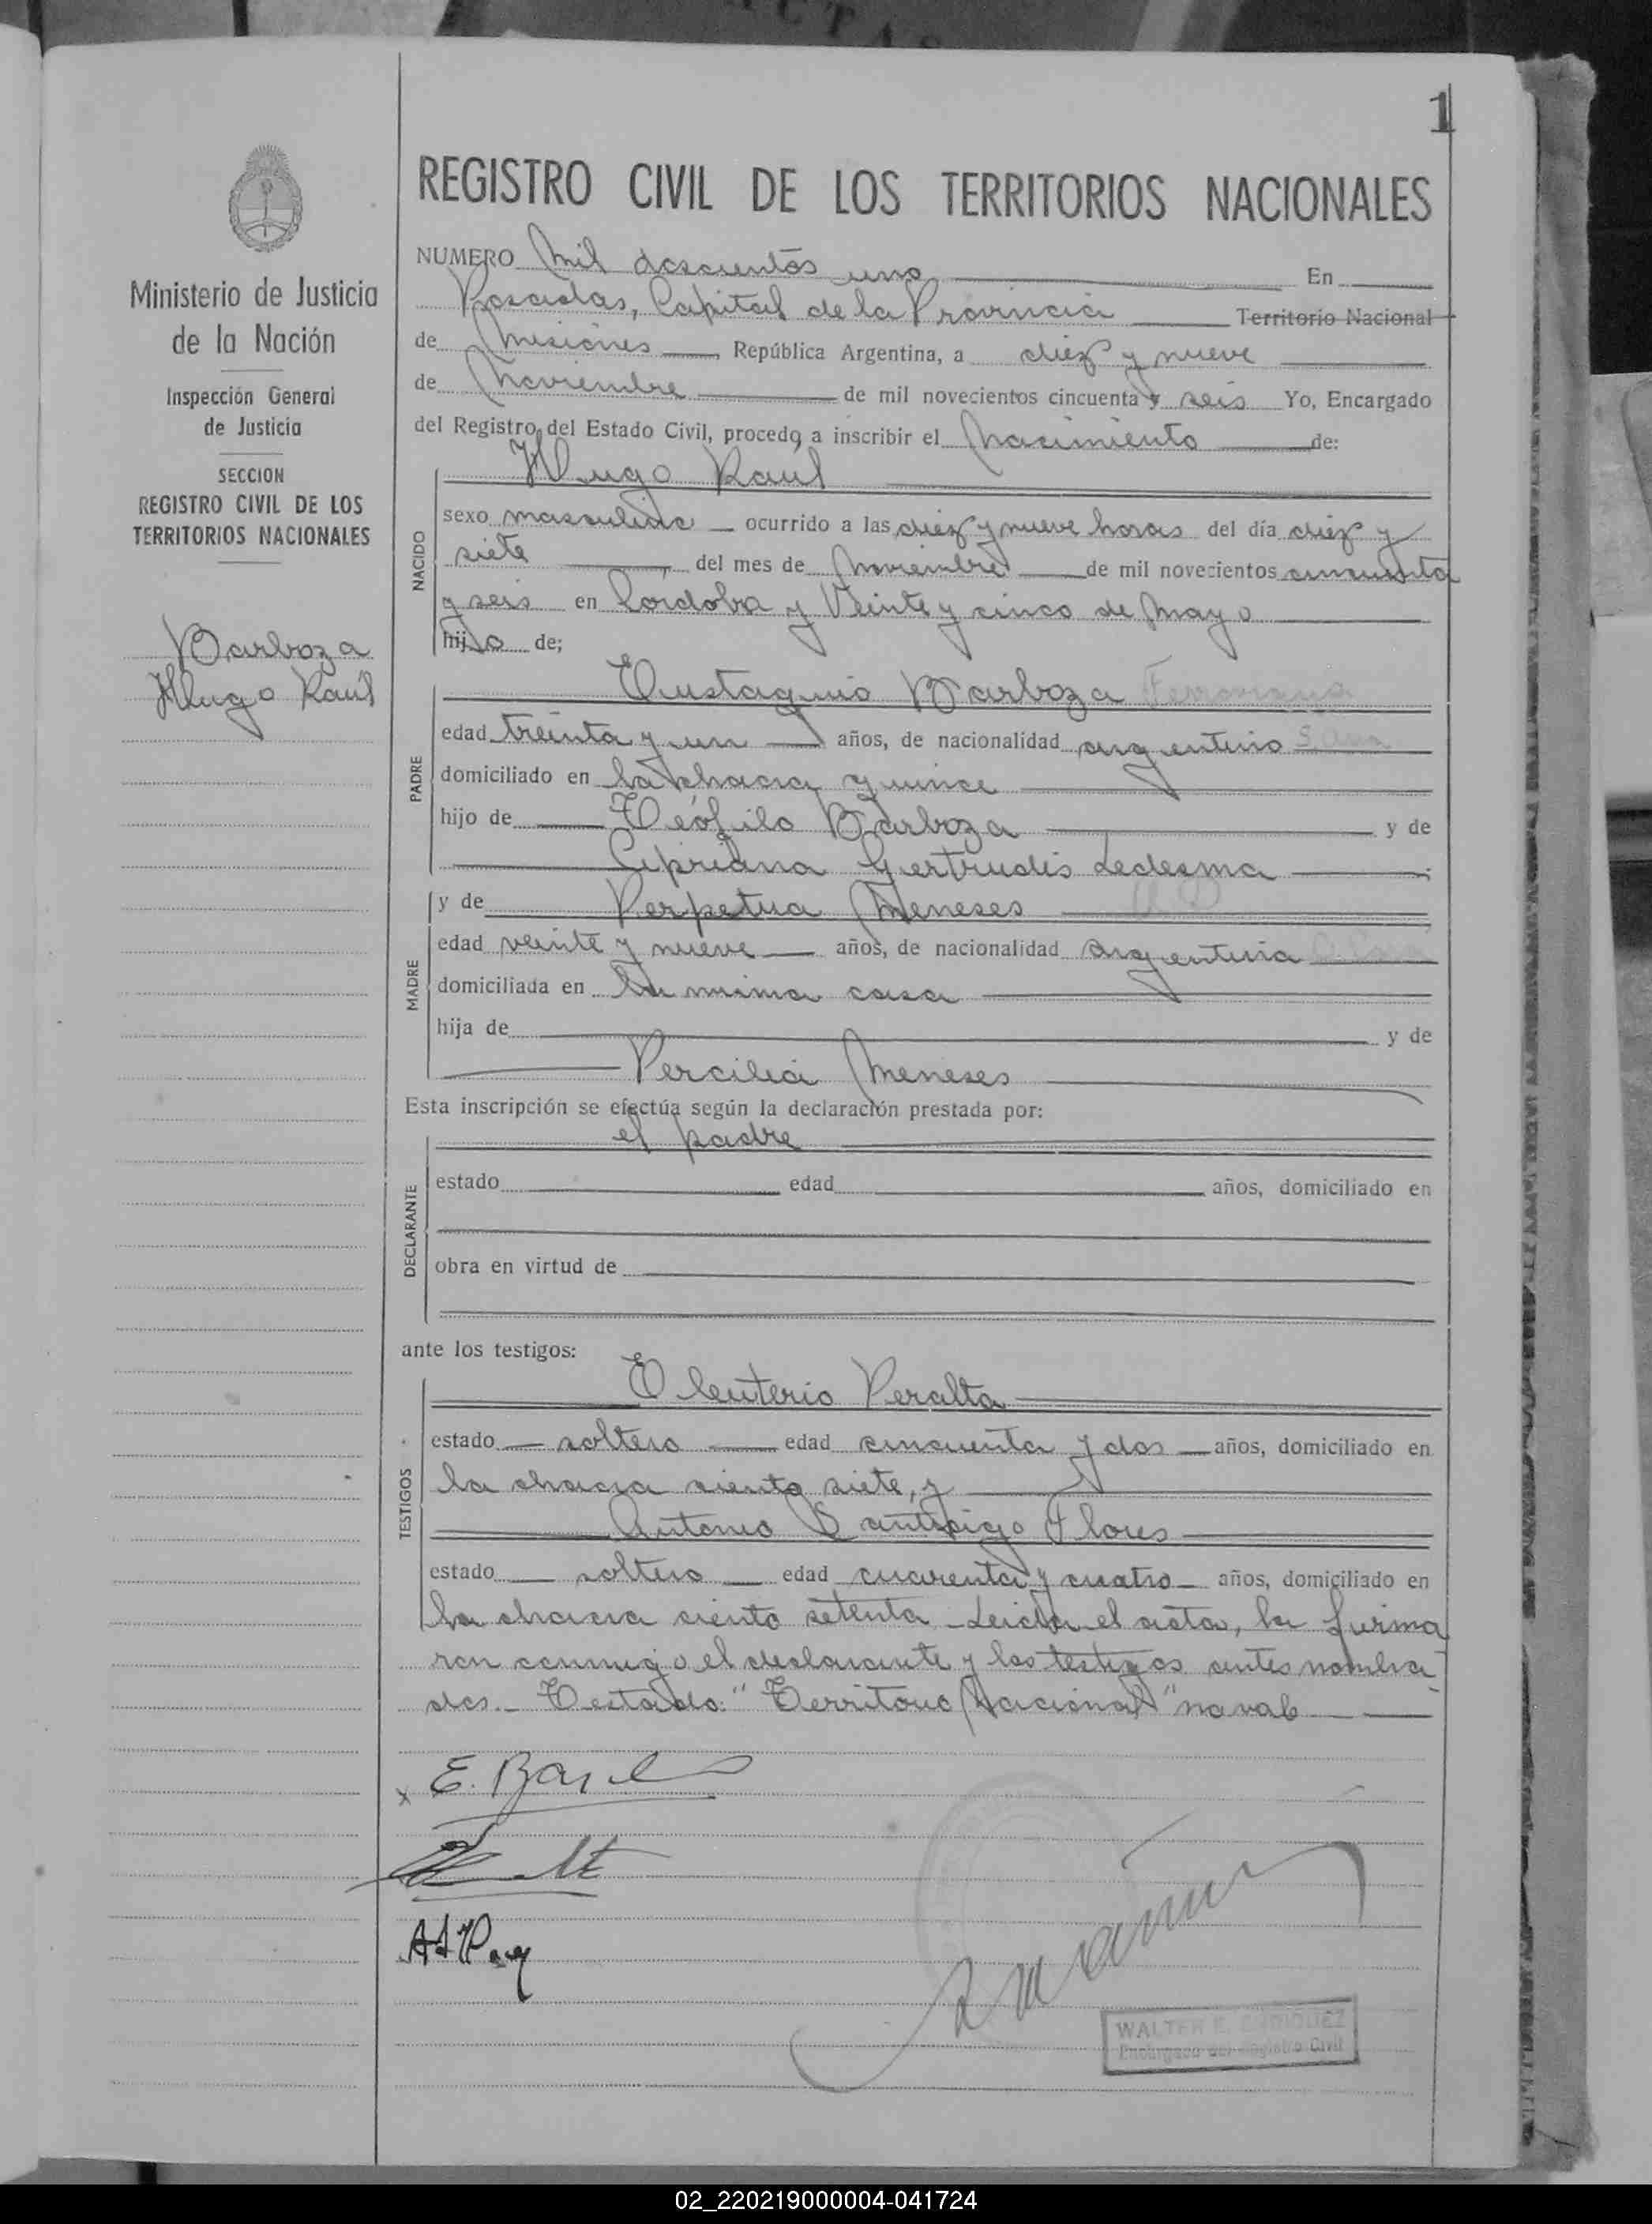 1
REGISTRO CIVIL DE LOS TERRITORIOS NACIONALES
Ministerio de Justicia
de la Nación
Inspección General
de Justicia
SECCION
REGISTRO CIVIL DE LOS
TERRITORIOS NACIONALES
Barboza
Hugo Raúl
NUMERO Mil doscientos uno En
Posadas, Capital de la Provincia Territorio Nacional
de Misiones República Argentina, a diez y nueve
de Noviembre de mil novecientos cincuenta y seis Yo, Encargado
del Registro del Estado Civil, procedo a inscribir el Nacimiento de:
Hugo Raúl
NACIDO
sexo masculino ocurrido a las diez y nueve horas del día diez y
siete del mes de Noviembre de mil novecientos cincuenta
y seis en Córdoba y Veinte y cinco de Mayo
hijo de;
PADRE
Eustaquio Barboza
edad treinta y un años, de nacionalidad argentino
domiciliado en la chacra quince
hijo de Teófilo Barboza y de
Cipriana Gertrudis Ledesma
MADRE
y de Perpetua Meneses
edad veinte y nueve años, de nacionalidad argentina
domiciliada en la misma casa
hija de y de
Percilia Meneses
Esta inscripción se efectúa según la declaración prestada por:
DECLARANTE
el padre
estado edad años, domiciliado en
obra en virtud de
ante los testigos:
TESTIGOS
Eleuterio Peralta
estado soltero edad cincuenta y dos años, domiciliado en
la chacra ciento siete, y
Antonio Santiago Flores
estado soltero edad cuarenta y cuatro años, domiciliado en
la chacra ciento setenta. Leida el acta, la firma
ron conmigo el declarante y los testigos antes nombra
dos.- Testado: "Territorio Nacional" no vale
x E. Bar
WALTER E. ENRIQUEZ
Encargado del Registro Civil
02_220219000004-041724